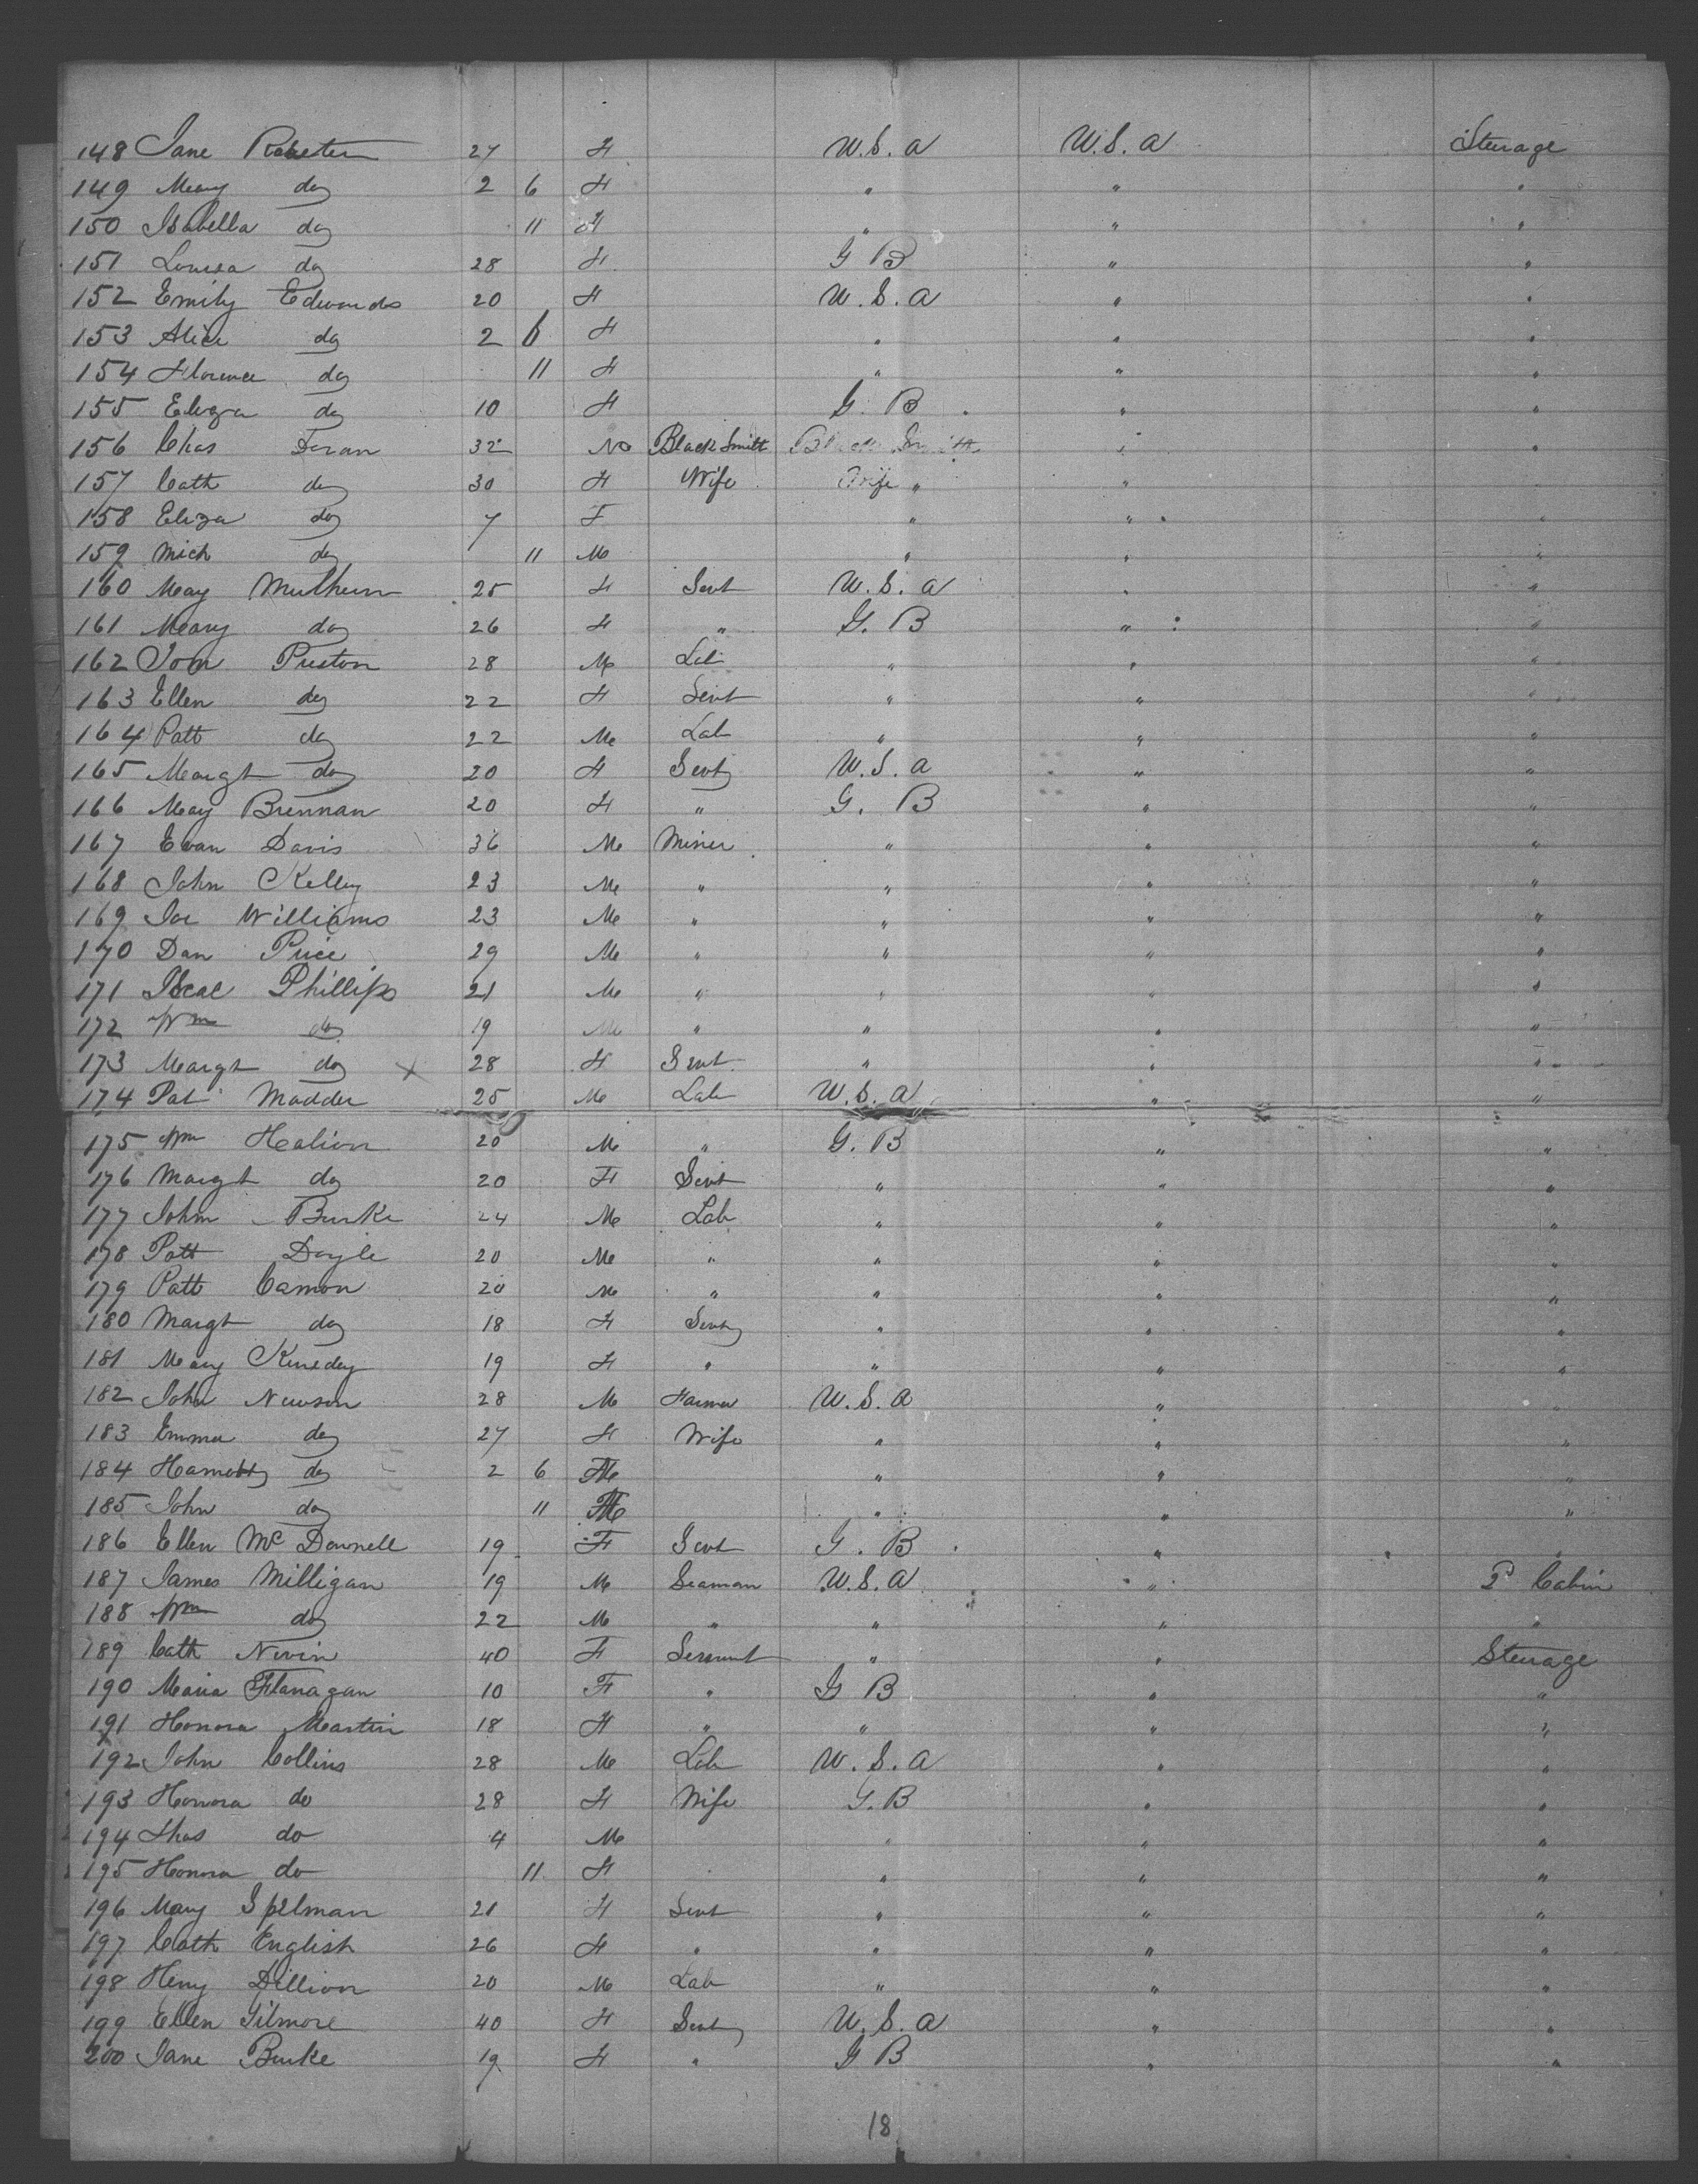 148 Jane 27 F U.S.A U.S.A Steerage
149 Mary do 2 6 F " " "
150 Isabella do 11 F " " "
151 Louisa do 28 F G B " "
152 Emily Edwards 20 F U.S.A " "
153 Alice do 2 6 F " " "
154 Florence do 11 F " " "
155 Eliza do 10 F G. B " "
156 Chas Doran 32 M Black Smith Black Smith " "
157 Cath do 30 F Wife Wife " "
158 Eliza do 7 F " " "
159 Mich do 11 M " " "
160 Mary Mulhern 25 F Servt U.S.A " "
161 Mary do 26 F " G. B " "
162 Jon Preston 28 M Lab " " "
163 Ellen do 22 F Servt " " "
164 Patt do 22 M Lab " " "
165 Margt do 20 F Servt U.S.A " "
166 Mary Brennan 20 F " G. B " "
167 Evan Davis 36 M Miner " " "
168 John Kelley 23 M " " " "
169 Joe Williams 23 M " " " "
170 Dan Price 29 M " " " "
171 Phillips 21 M " " " "
172 Wm do 19 M " " " "
173 Margt do X 28 F Servt " " "
174 Pat Madder 25 M Lab U.S.A " "
175 Wm Halion 20 M " G. B " "
176 Margt do 20 F Servt " " "
177 John Burke 24 M Lab " " "
178 Patt Doyle 20 M " " " "
179 Patt Camon 20 M " " " "
180 Margt do 18 F Servt " " "
181 Mary Kenedey 19 F " " " "
182 John Newson 28 M Farmer U.S.A " "
183 Emma do 27 F Wife " " "
184 do 2 6 " " "
185 John do 11 " " "
186 Ellen Mc Donnell 19 F Servt G. B " "
187 James Milligan 19 M Seaman U.S.A " 2d Cabin
188 Wm do 22 M " " " "
189 Cath Nevin 40 F Servant " " Steerage
190 Maria Flanagan 10 F " G B " "
191 Honora Martin 18 F " " " "
192 John Collins 28 M Lab U.S.A " "
193 Honora do 28 F Wife G. B " "
194 Thos do 4 M " " "
195 Honora do 11 F " " "
196 Mary Spelman 21 F Servt " " "
197 Cath English 26 F " " " "
198 Henry Dillion 20 M Lab " " "
199 Ellen Gilmore 40 F Servt U.S.A " "
200 Jane Burke 19 F " G B " "
18